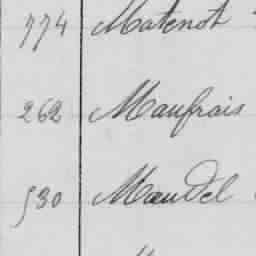 774 Matenot
262 Maufrais
530 Maudel